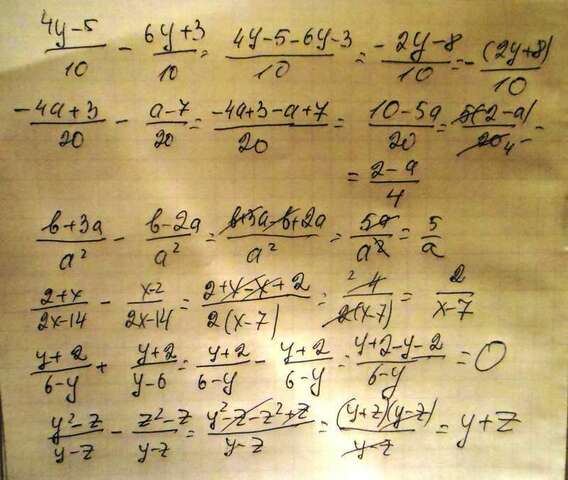 (4y-5)/10 - (6y+3)/10 = (4y-5-6y-3)/10 = (-2y-8)/10 = -(2y+8)/10
(-4a+3)/20 - (a-7)/20 = (-4a+3-a+7)/20 = (10-5a)/20 = 5(2-a)/20 4 =
= (2-a)/4
(b+3a)/a² - (b-2a)/a² = (b+3a-b+2a)/a² = 5a/a² = 5/a
(2+x)/(2x-14) - (x-2)/(2x-14) = (2+x-x+2)/2(x-7) = 2 4/2(x-7) = 2/(x-7)
(y+2)/(6-y) + (y+2)/(y-6) = (y+2)/(6-y) - (y+2)/(6-y) = (y+2-y-2)/(6-y) = 0
(y²-z)/(y-z) - (z²-z)/(y-z) = (y²-z-z²+z)/(y-z) = (y+z)(y-z)/(y-z) = y+z